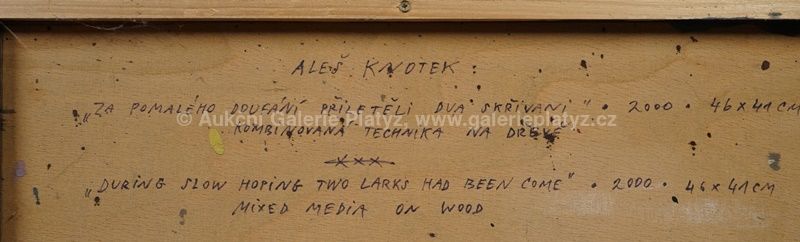 ALEŠ KNOTEK:
„ZA POMALÉHO DOUFÁNÍ PŘILETĚLI DVA SKŘIVANI" • 2000 • 46×41CM
© Aukcni Galerie Platyz, www.galerieplatyz.cz
KOMBINOVANÁ TECHNIKA NA DŘEVĚ
×××
„DURING SLOW HOPING TWO LARKS HAD BEEN COME" • 2000 • 46×41CM
MIXED MEDIA ON WOOD